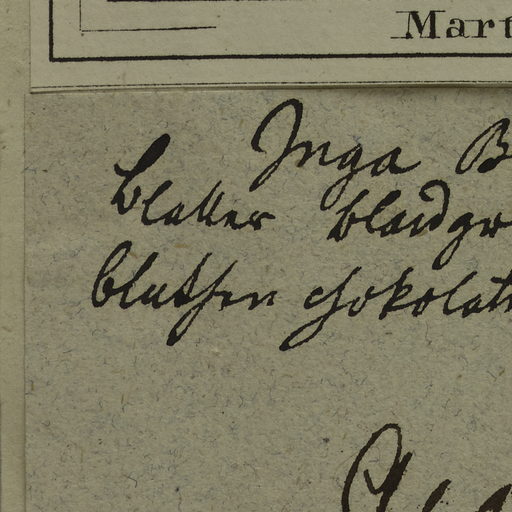 Mart
Inga B
blatter blaudgr
bluthen chokolat